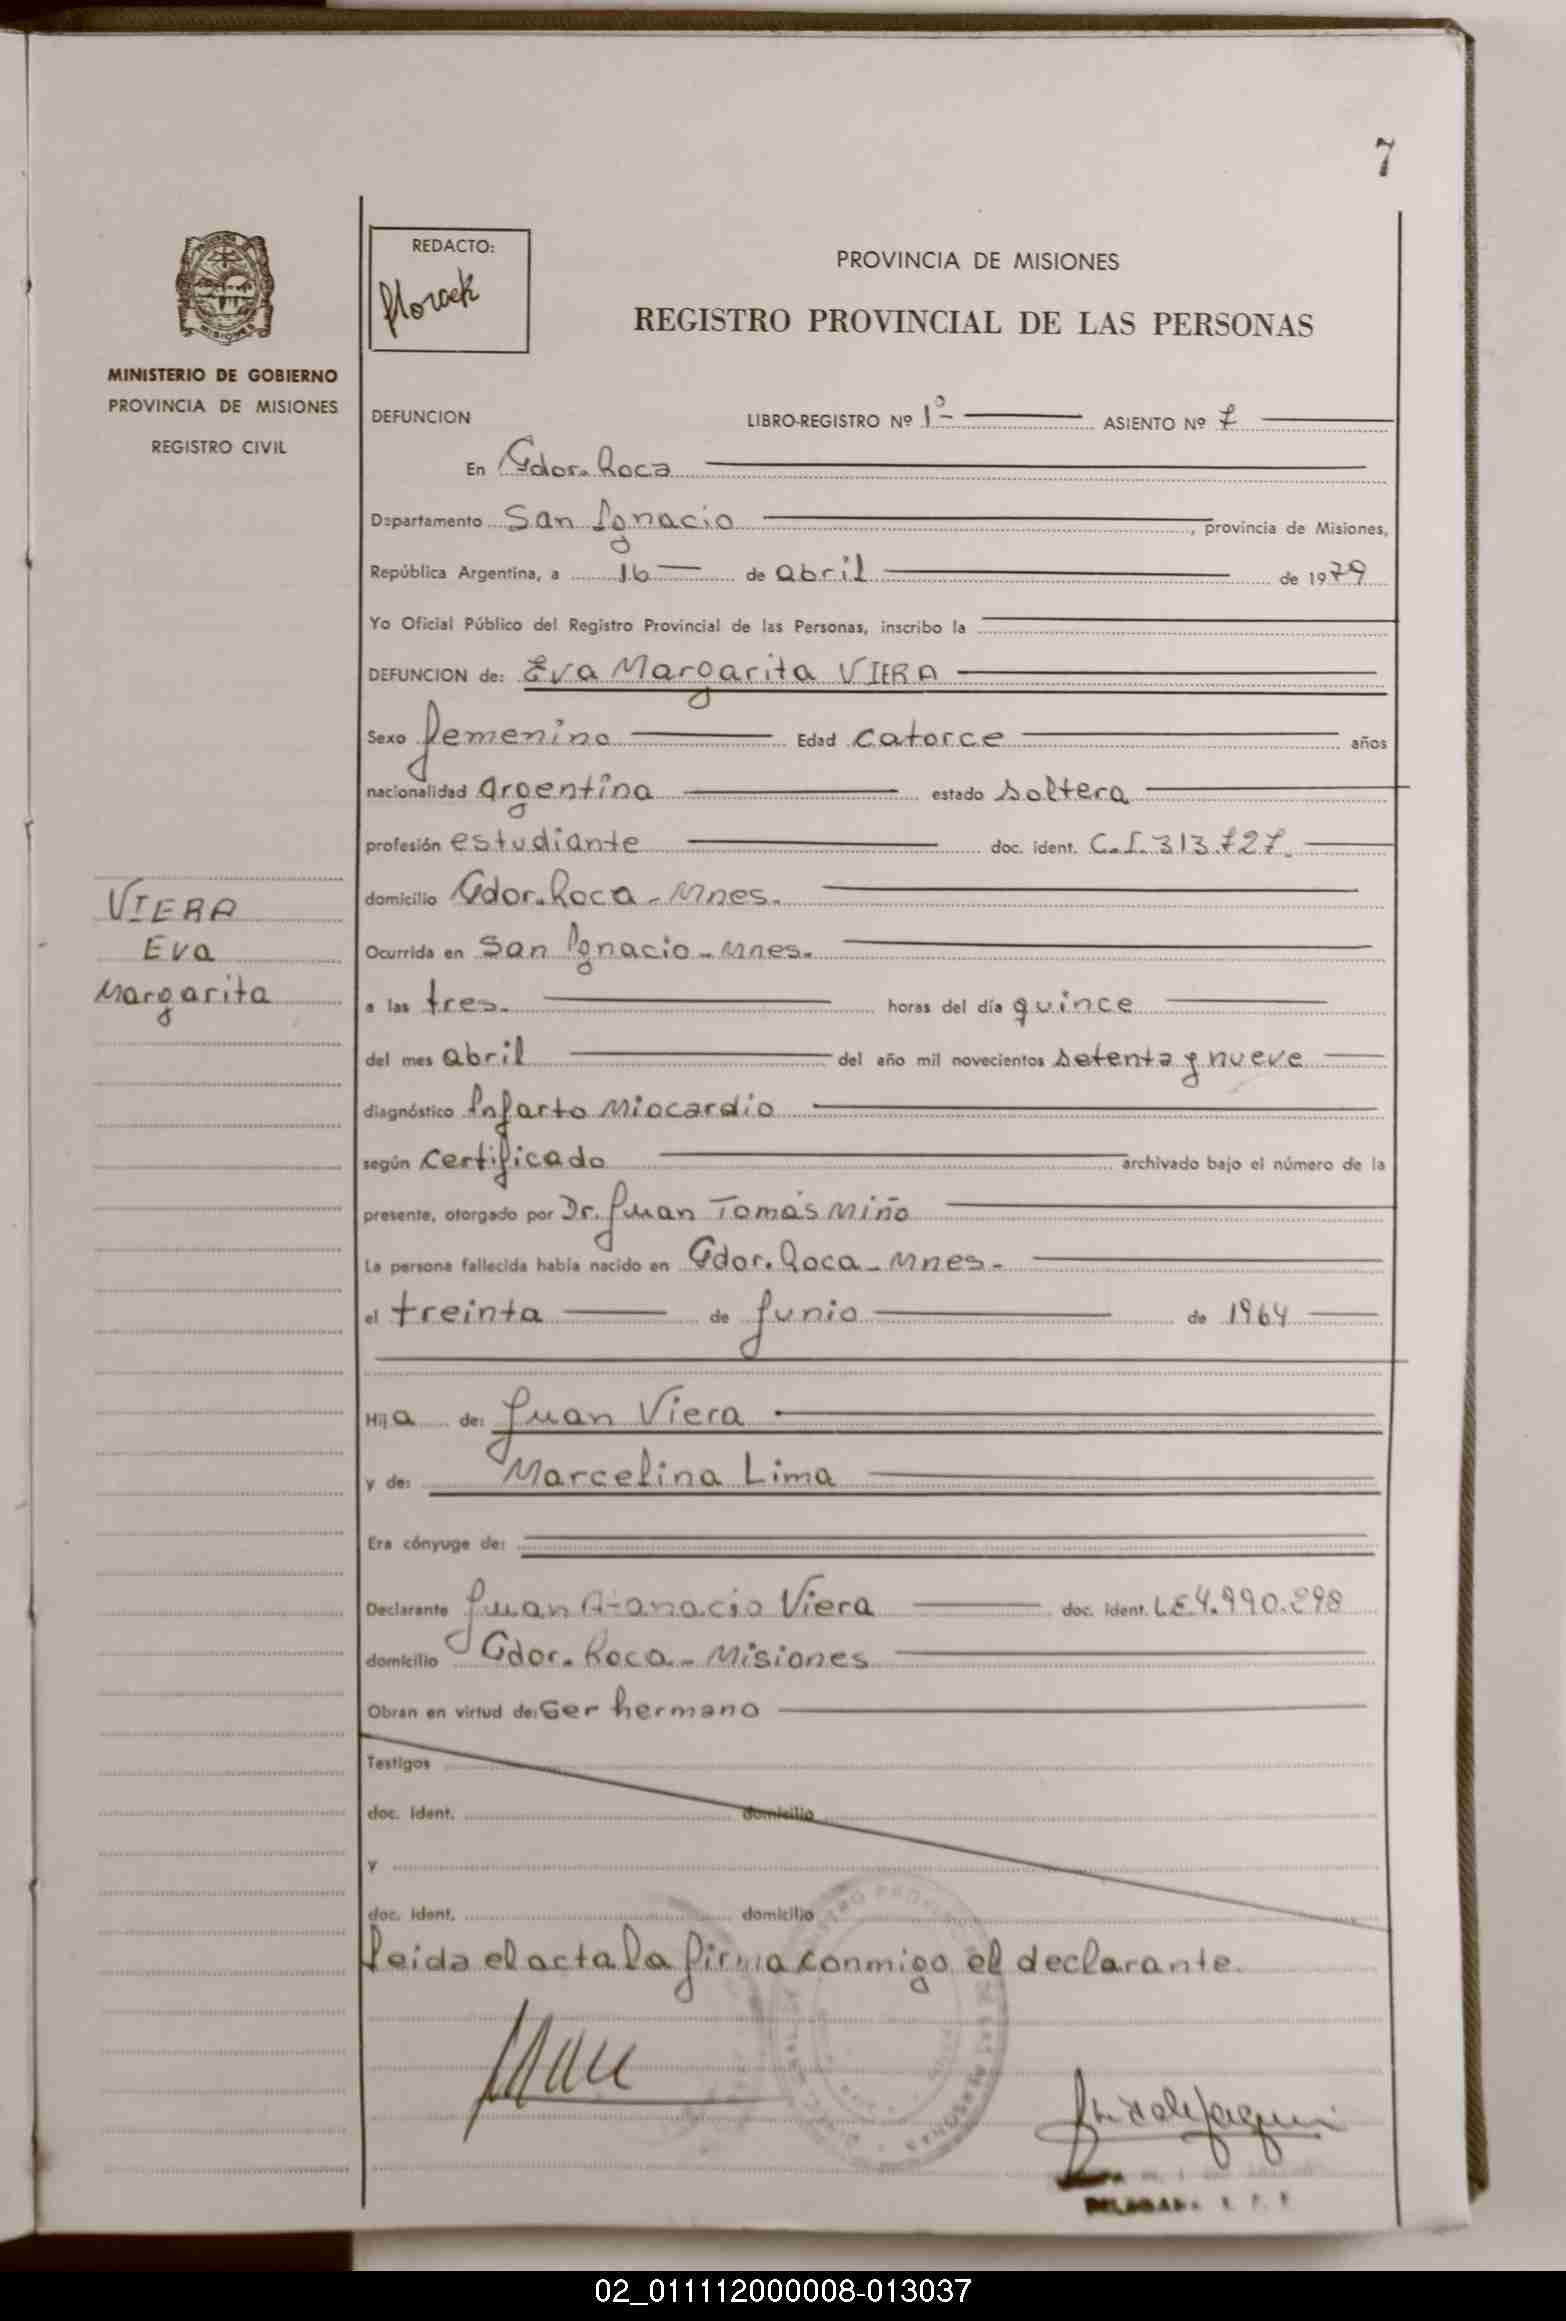 7
REDACTO:
PROVINCIA DE MISIONES
REGISTRO PROVINCIAL DE LAS PERSONAS
MINISTERIO DE GOBIERNO
PROVINCIA DE MISIONES
REGISTRO CIVIL
DEFUNCION LIBRO-REGISTRO Nº 1º- ASIENTO Nº 7
En Gdor. Roca
Departamento San Ignacio, provincia de Misiones,
República Argentina, a 16 de abril de 1979
Yo Oficial Público del Registro Provincial de las Personas, inscribo la
DEFUNCION de: Eva Margarita VIERA
Sexo femenino Edad catorce años
nacionalidad argentina estado soltera
profesión estudiante doc. ident. C.I. 313.727.
VIERA
Eva
Margarita
domicilio Gdor. Roca - Mnes.
Ocurrida en San Ignacio - Mnes.
a las tres. horas del día quince
del mes abril del año mil novecientos setenta y nueve
diagnóstico Infarto Miocardio
según certificado archivado bajo el número de la
presente, otorgado por Dr. Juan Tomás Miño
La persona fallecida había nacido en Gdor. Roca - Mnes -
el treinta de junio de 1964
Hija de: Juan Viera
y de: Marcelina Lima
Era cónyuge de:
Declarante Juan Atanacio Viera doc. ident. L.E 4.990.298
domicilio Gdor. Roca - Misiones
Obran en virtud de: Ser hermano
Testigos
doc. ident. domicilio
y
doc. ident. domicilio
Leida el acta la firma conmigo el declarante.
02_011112000008-013037